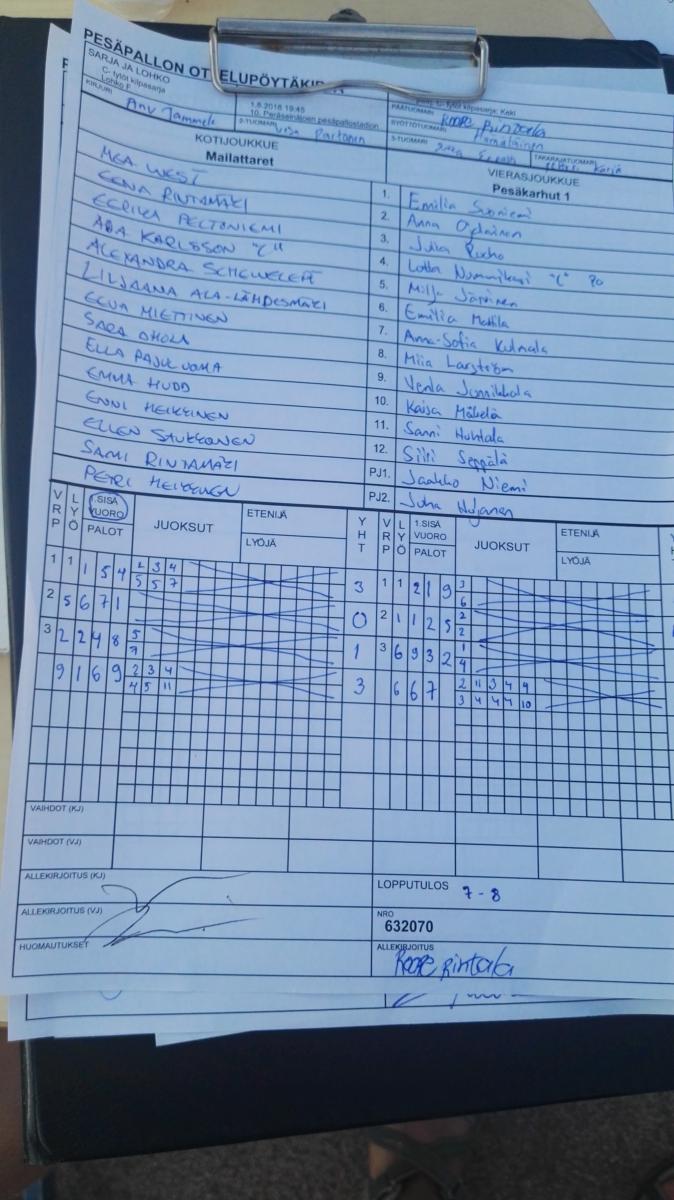 PESÄPALLON OTTELUPÖYTÄKIR
SARJA JA LOHKO
C- tytöt kilpasarja
Lohko F
KIRJURI
Anu Jammele
1.6.2016 19:45
10. Peräseinäjoen pesäpallostadion
2-TUOMARI
Partanen
C- tytöt kilpasarja: Keki
PÄÄTUOMARI
ROOPE Rintala
SYÖTTÖTUOMARI
3-TUOMARI
TAKARAJATUOMARI
KOTIJOUKKUE
Mailattaret
VIERASJOUKKUE
Pesäkarhut 1
MEA WEST 1. Emilia Suoniemi
EENA RINTAMÄKI 2. Anna
EERIKA PELTONIEMI 3. Julia
ADA KARLSSON "C" 4. Lotta "C"
ALEXANDRA 5. Milja Järvinen
LILJAANA ALA-LÄHDESMÄKI 6. Emilia Mattila
EEVA MIETTINEN 7. Anna-Sofia Kulmala
SARA OHOLA 8. Miia Larström
ELLA PAJULUOMA 9. Venla
EMMA HUDD 10. Kaisa Mäkelä
ENNI HEIKKINEN 11. Sanni Huhtala
ELLEN 12. Siiri Seppälä
SAMI RINTAMÄKI PJ1. Jaakko Niemi
PETRI HEIKKINEN PJ2. Juha
VRP LYÖ 1.SISÄ VUORO PALOT JUOKSUT ETENIJÄ LYÖJÄ YHT VRP LYÖ 1.SISÄ VUORO PALOT JUOKSUT ETENIJÄ LYÖJÄ
1 1 1 5 4 2 3 4 3 1 1 2 1 9 3
5 5 7 6
2 5 6 7 1 0 2 1 1 2 5 2
2
3 2 2 4 8 5 1 3 6 9 3 2 1
7 4
9 1 6 9 2 3 4 3 6 6 7 2 11 3 4 9
4 5 11 3 4 4 4 10
VAIHDOT (KJ)
VAIHDOT (VJ)
ALLEKIRJOITUS (KJ)
LOPPUTULOS 7 - 8
ALLEKIRJOITUS (VJ)
NRO
632070
HUOMAUTUKSET
ALLEKIRJOITUS
Roope Rintala